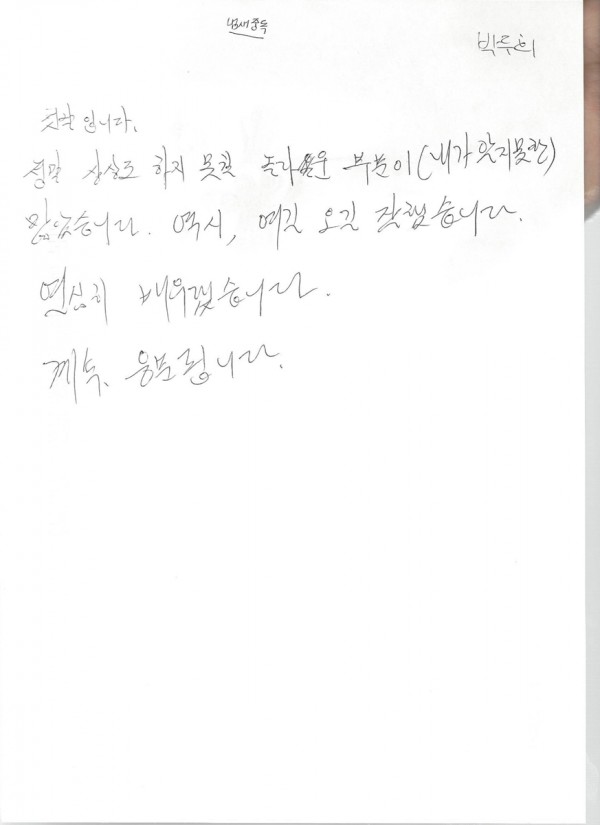 냄새중독
박두희
첫날입니다.
정말 상상도 하지 못한 놀라운 부분이(내가 맞지못한)
많았습니다. 역시, 여긴 오길 잘했습니다.
열심히 배우겠습니다.
계속, 응부립니다.